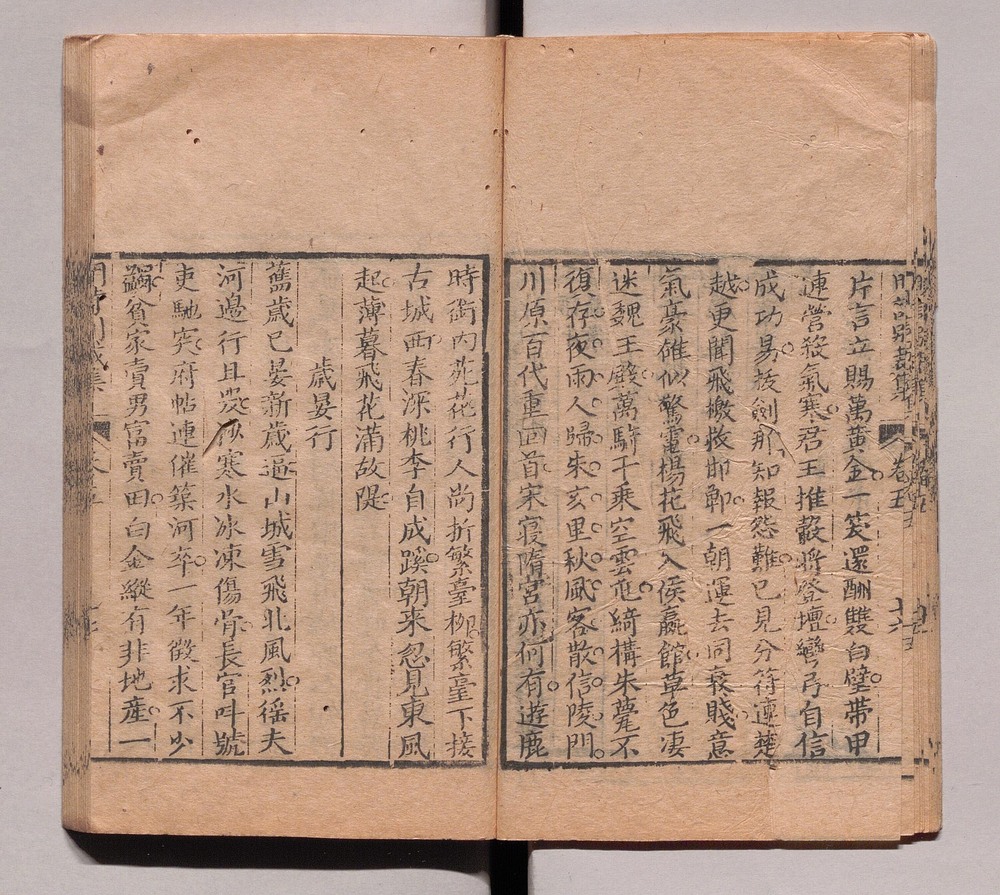 片言立賜萬黄金一笑還酬雙白璧帶甲
連營殺氣寒君王推轂將登壇彎弓自信
成功易拔劍那知報怨難已見分符連楚
越更聞飛檄救邯鄲一朝運去同衰賤意
氣豪雄似驚電楊花飛入侯嬴館草色凄
迷魏王殿萬騎千乘空雲屯綺構朱甍不
復存夜雨人歸朱亥里秋風客散信陵門
川原百代重回首宋寢隋宮亦何有遊鹿
時銜内苑花行人尚折繁臺柳繁臺下接
古城西春深桃李自成蹊朝来忽見東風
起薄暮飛花滿故隄
歲晏行
舊歲已晏新歲逼山城雪飛北風烈徭夫
河邊行且哭沙寒水冰凍傷骨長官叫號
吏馳突府帖連催築河卒一年徵求不少
蠲貧家賣男富賣田白金縱有非地產一